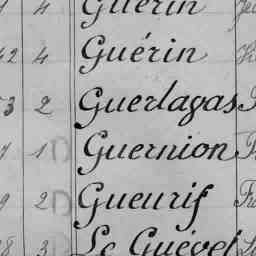 4 Guérin
42 4 Guérin
53 2 Guerlagas
7 1 D Guernion
9 2 D Gueurif
8 3 Le Guével